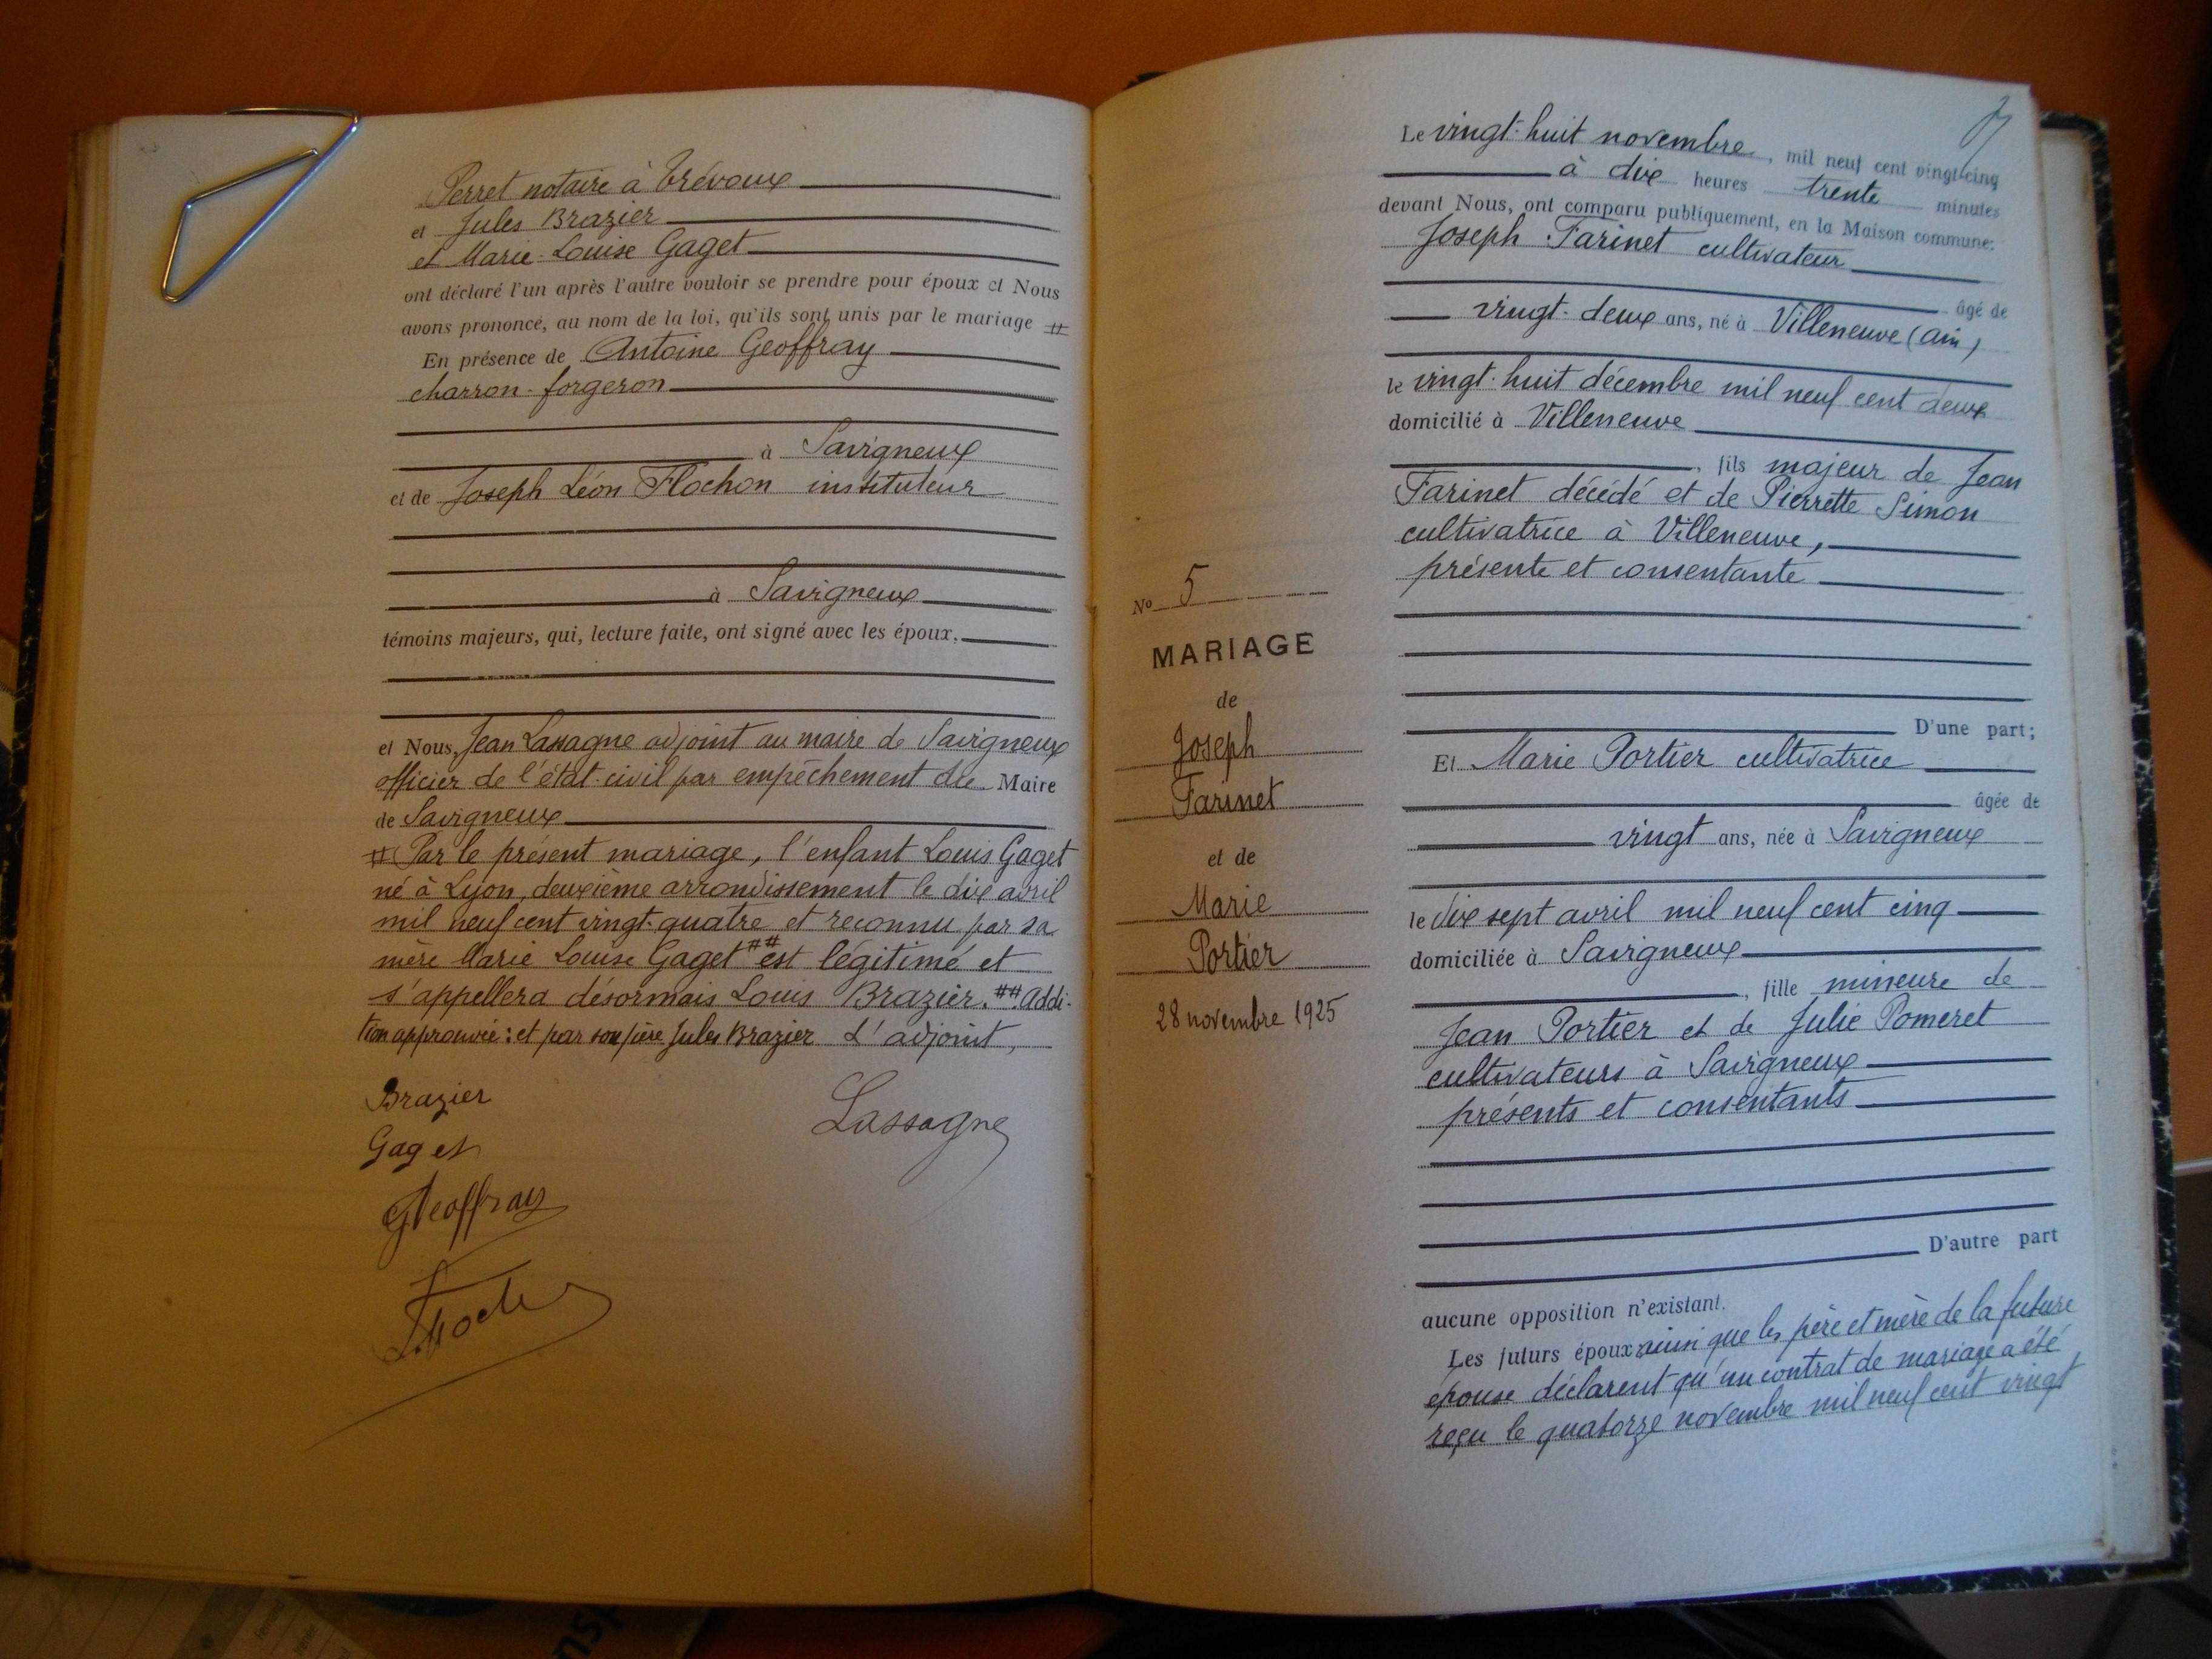 Perret notaire à Trévoux
et Jules Brazier
et Marie-Louise Gaget
ont déclaré l'un après l'autre vouloir se prendre pour époux et Nous
avons prononcé, au nom de la loi, qu'ils sont unis par le mariage #
En présence de Antoine Geoffray
charron-forgeron
à Savigneux
et de Joseph Léon Flochon instituteur
à Savigneux
témoins majeurs, qui, lecture faite, ont signé avec les époux.
et Nous, Jean Lassagne adjoint au maire de Savigneux
officier de l'état-civil par empêchement du Maire
de Savigneux
# Par le présent mariage, l'enfant Louis Gaget
né à Lyon, deuxième arrondissement le dix avril
mil neuf cent vingt-quatre et reconnu par sa
mère Marie Louise Gaget ## est légitimé et
s'appellera désormais Louis Brazier. ## Addi-
tion approuvée : et par son père Jules Brazier L'adjoint,
Brazier
Lassagne
Gaget
Geoffray
N° 5
MARIAGE
de
Joseph
Farinet
et de
Marie
Portier
28 novembre 1925
Le vingt-huit novembre, mil neuf cent vingt-cinq
à dix heures trente minutes
devant Nous, ont comparu publiquement, en la Maison commune:
Joseph Farinet cultivateur
âgé de
vingt-deux ans, né à Villeneuve (ain)
le vingt-huit décembre mil neuf cent deux
domicilié à Villeneuve
, fils majeur de Jean
Farinet décédé et de Pierrette Simon
cultivatrice à Villeneuve,
présente et consentante
D'une part;
Et Marie Portier cultivatrice
âgée de
vingt ans, née à Savigneux
le dix sept avril mil neuf cent cinq
domiciliée à Savigneux
, fille mineure de
Jean Portier et de Julie Pomeret
cultivateurs à Savigneux
présents et consentants
D'autre part
aucune opposition n'existant.
Les futurs époux ainsi que les père et mère de la future
épouse déclarent qu'un contrat de mariage a été
reçu le quatorze novembre mil neuf cent vingt